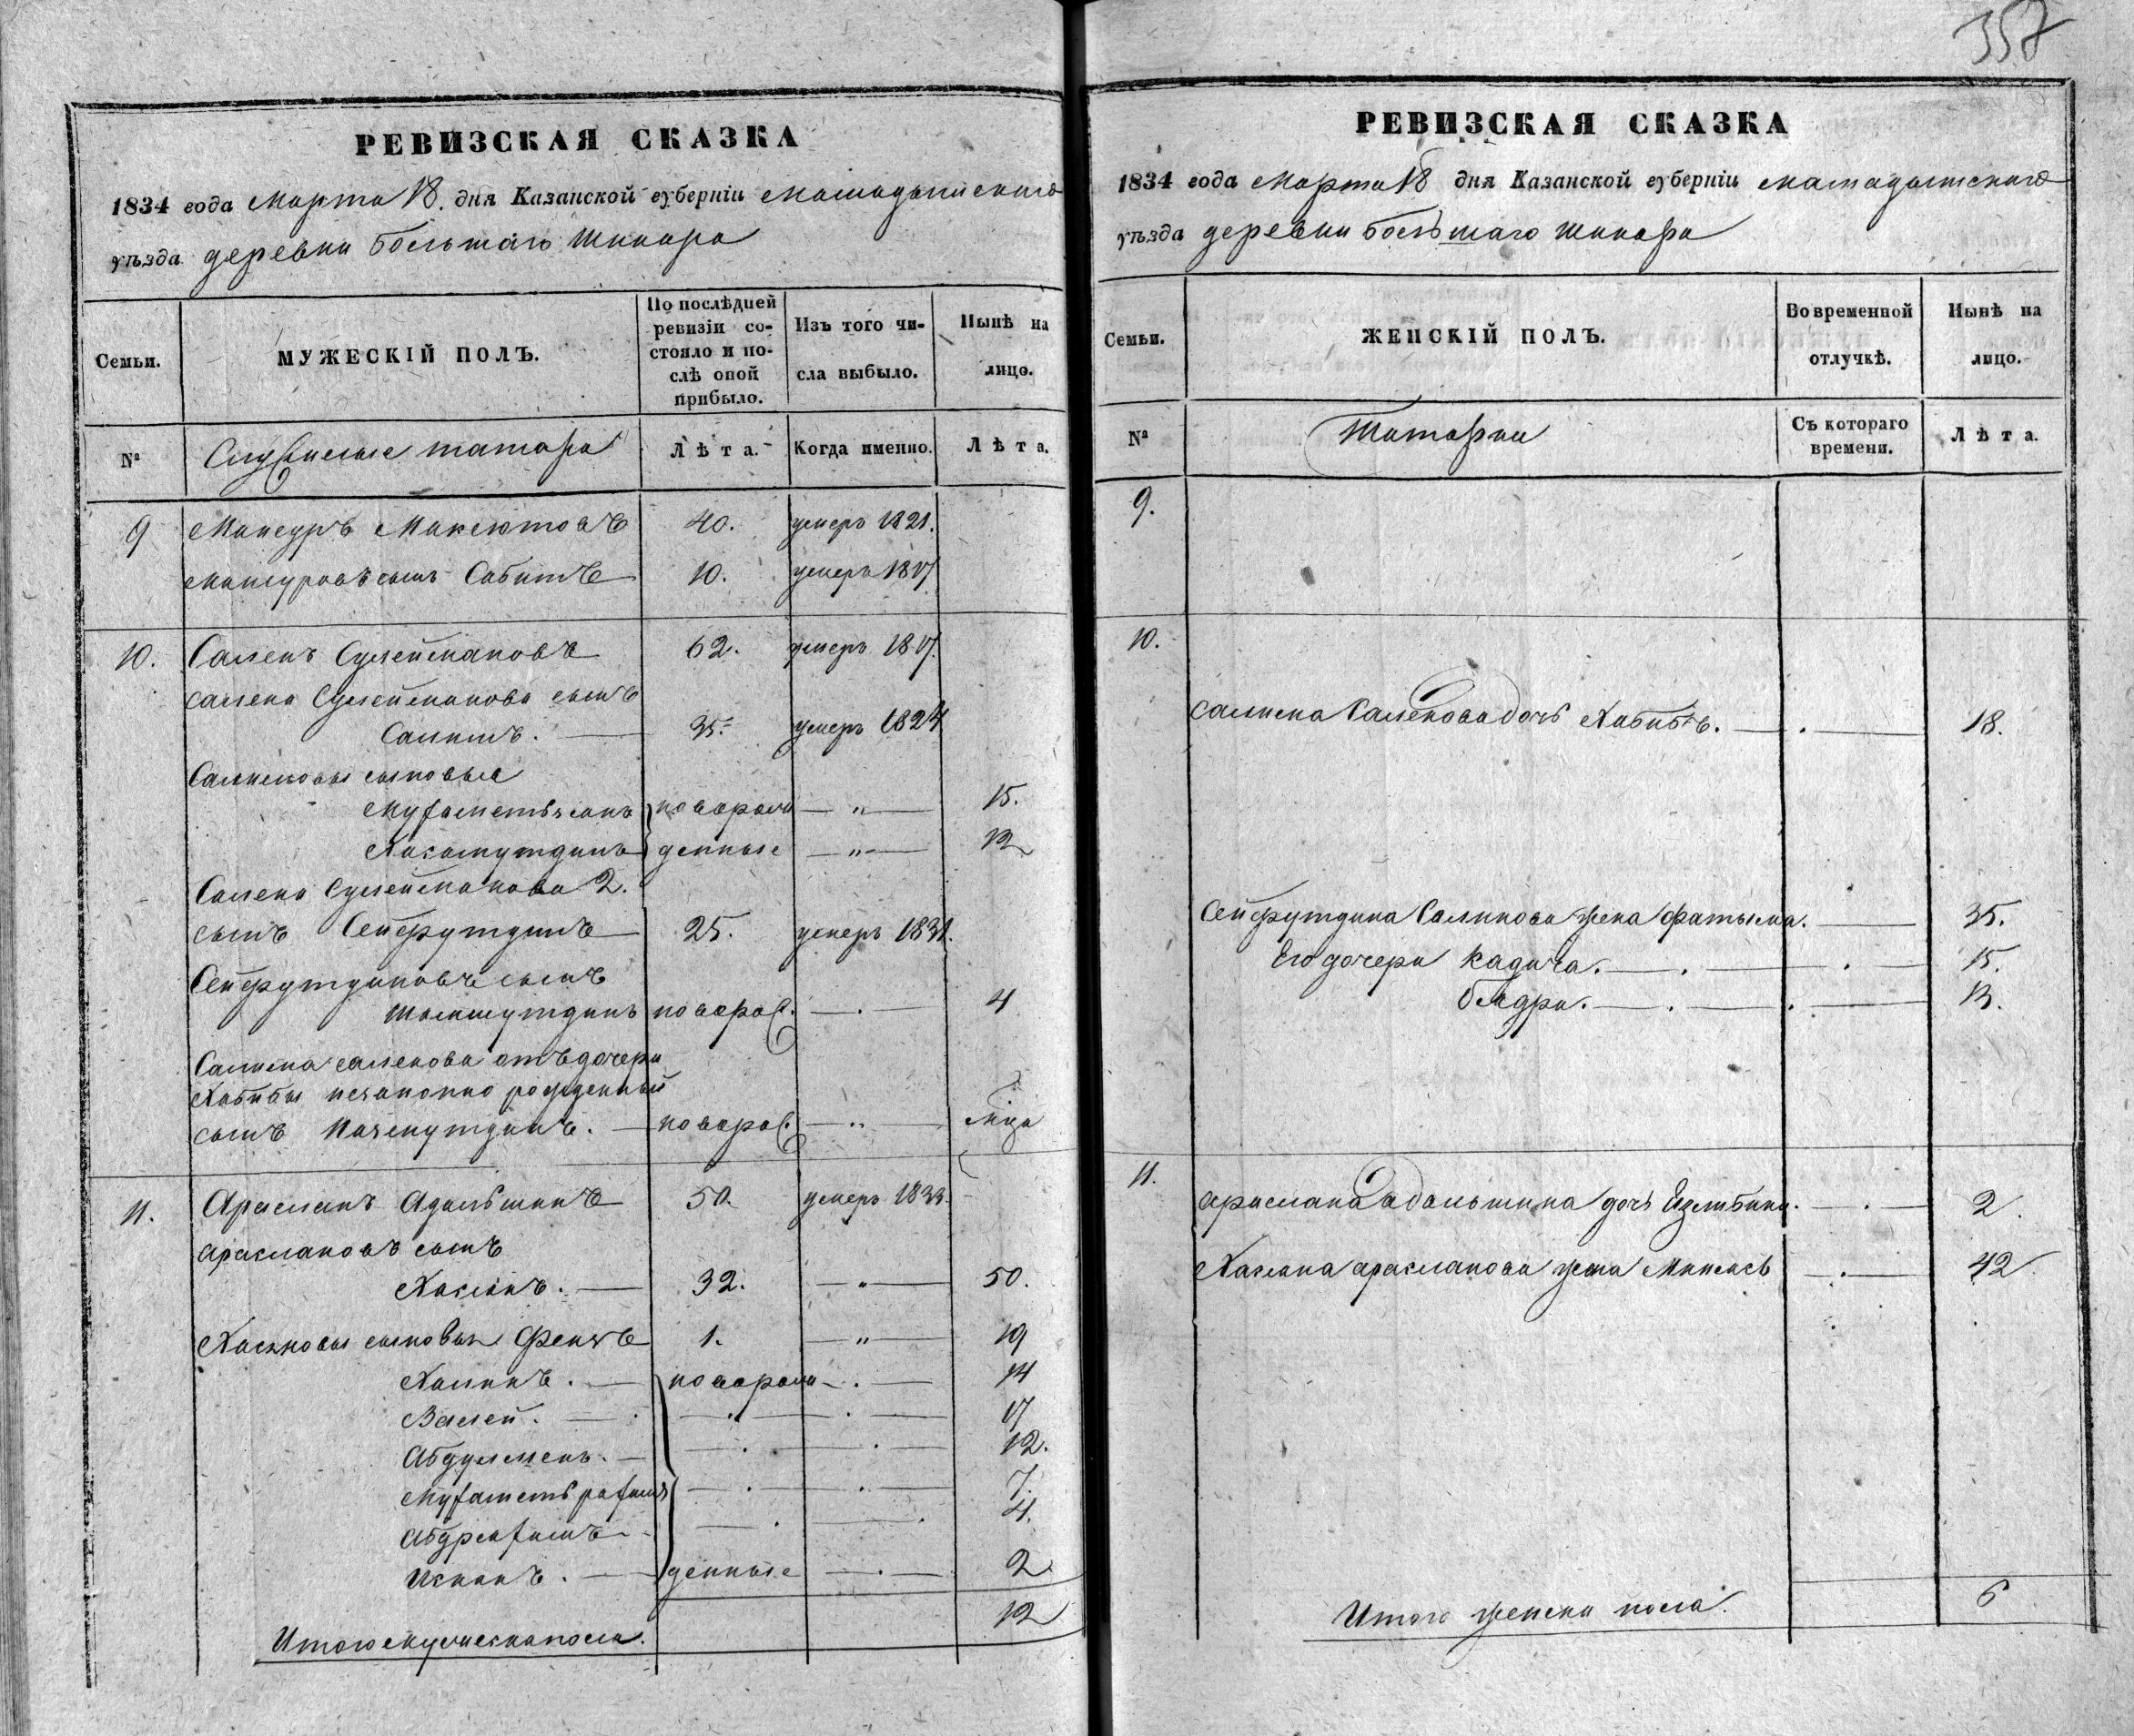 357
РЕВИЗСКАЯ СКАЗКА
1834 года Марта 18. дня Казанской губерніи Мамадышскаго
уѣзда деревни Большаго Шинара
Семьи.
МУЖЕСКІЙ ПОЛЪ.
По послѣдней ревизіи состояло и послѣ оной прибыло.
Изъ того числа выбыло.
Нынѣ на лицо.
№
Служилые татара
Лѣта.
Когда именно.
Лѣта.
9 Мансуръ Максютовъ 40. умеръ 1821.
Мансуровъ сынъ Сабитъ 10. умеръ 1817
10. Саленъ Сулеймановъ 62. умеръ 1817.
Салена Сулейманова сынъ
Салимъ. 35. умеръ 1824
Салимовы сыновья
Мухаметьянъ новорож 15.
денные 12
Салена Сулейманова 2.
сынъ Сейфутдинъ 25. умеръ 1831.
Сейфутдиновъ сынъ
Шамшутдинъ новорож. 4
Салима Саленова отъ дочери
Хабибы незаконно рожденный
сынъ новорож.
11. Арасланъ Адальшинъ 50. умеръ 1833.
Араслановъ сынъ
32. 50.
сыновья 1. 19
новорож 14
Валей. 17
12.
Мухаметь рахимъ 7.
Абдрахимъ 4.
денные 2
Итого мужеска пола. 12
РЕВИЗСКАЯ СКАЗКА
1834 года Марта 18 дня Казанской губерніи Мамадышскаго
уѣзда деревни Большаго Шинара
Семьи.
ЖЕНСКІЙ ПОЛЪ.
Во временной отлучкѣ.
Нынѣ на лицо.
№
Татарки
Съ котораго времени.
Лѣта.
9.
10.
Салима Саленова дочь Хабибъ. 18.
Сейфутдина Салинова жена Фатыма. 35.
Его дочери Кадича. 15.
Бадри. 13.
11.
Араслана Адальшина дочь 2.
Арасланова жена 42
Итого женска пола. 6